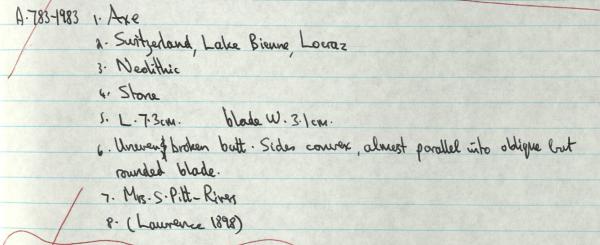 A.783-1983 1. Axe
2. Switzerland, Lake Bienne, Locraz
3. Neolithic
4. Stone
5. L. 7.3cm. blade W. 3.1cm.
6. Uneven & broken butt. Sides convex, almost parallel into oblique but
rounded blade.
7. Mrs. S. Pitt-Rivers
8. (Lawrence 1898)